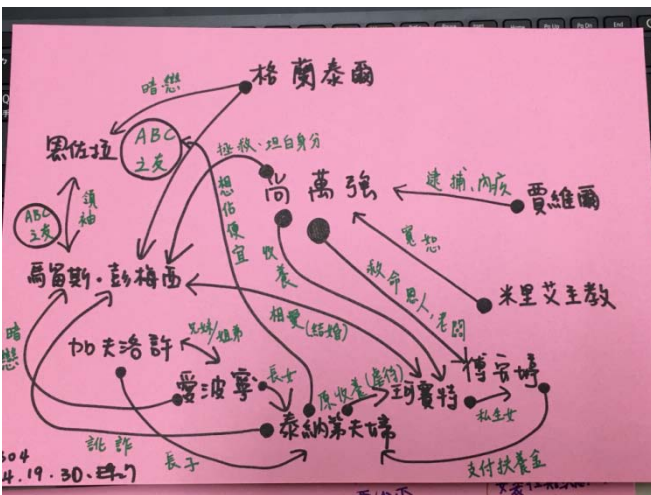 格蘭泰爾
暗戀
恩佐拉
ABC
之友
拯救、坦白身分
尚萬強
逮捕、內疚
賈維爾
ABC
之友
領袖
想佔便宜
收養
寬恕
救命恩人、老闆
米里艾主教
馬留斯·彭梅西
相愛(結婚)
加夫洛許
兄妹/姐弟
暗戀
愛波寧
長女
原收養(虐待)
珂賽特
博宮婷
私生女
泰納第夫婦
訛詐
長子
支付扶養金
304
4.19.30.
End